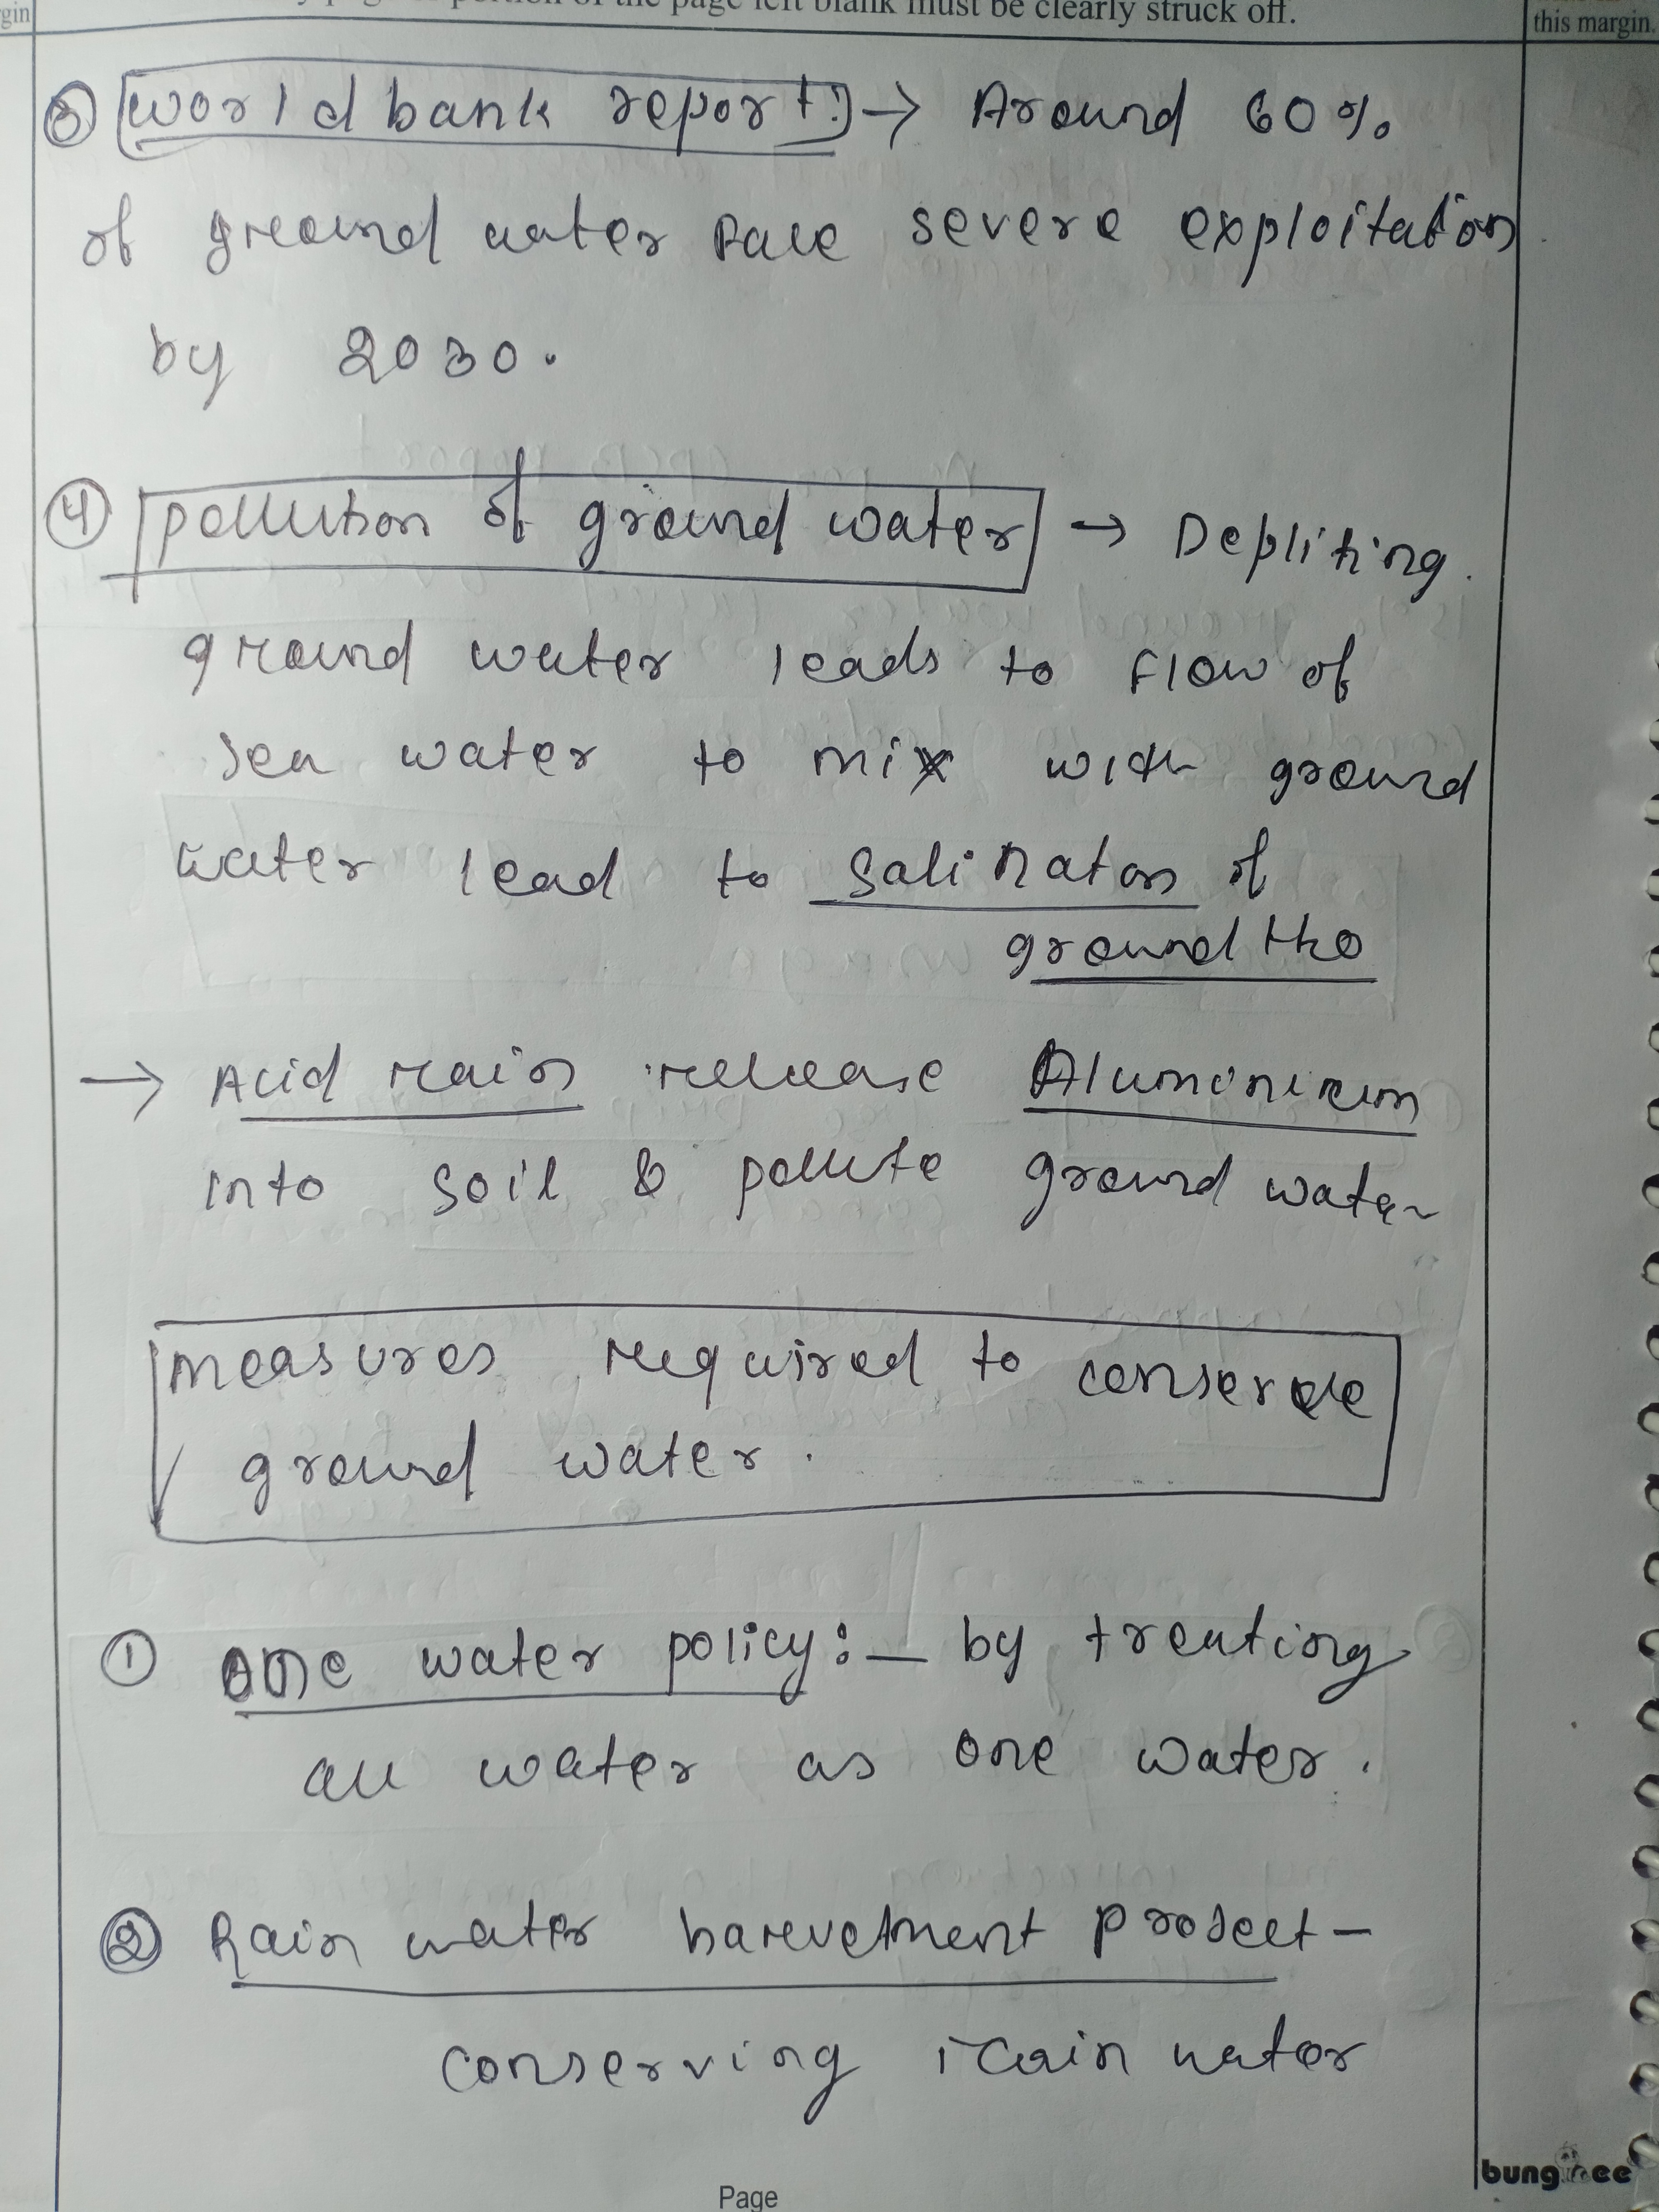 gin
page left blank must be clearly struck off.
this margin.
③ World bank report: → Around 60%
of ground water face severe exploitation
by 2030.
④ pollution of ground water → Depliting
ground water leads to flow of
sea water to mix with ground
water lead to Salinaton of
ground H2O
→ Acid rain release Alumonium
into soil & pollute ground water
measures required to conserve
ground water.
① One water policy:- by treating
all water as one water.
② Rain water harevetment project -
conserving rain water
Page